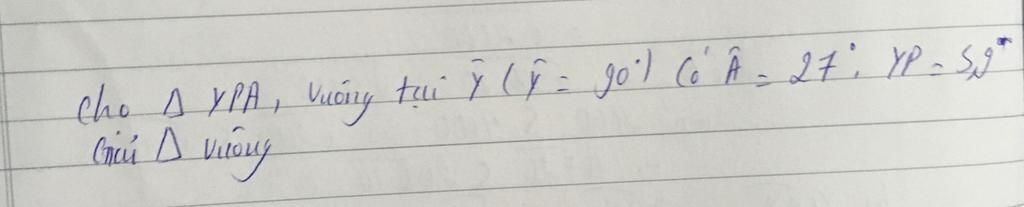 Cho Δ YPA, vuông tại Ŷ (Ŷ = 90°) Có Â = 27°. YP = 5,9
Giải Δ vuông